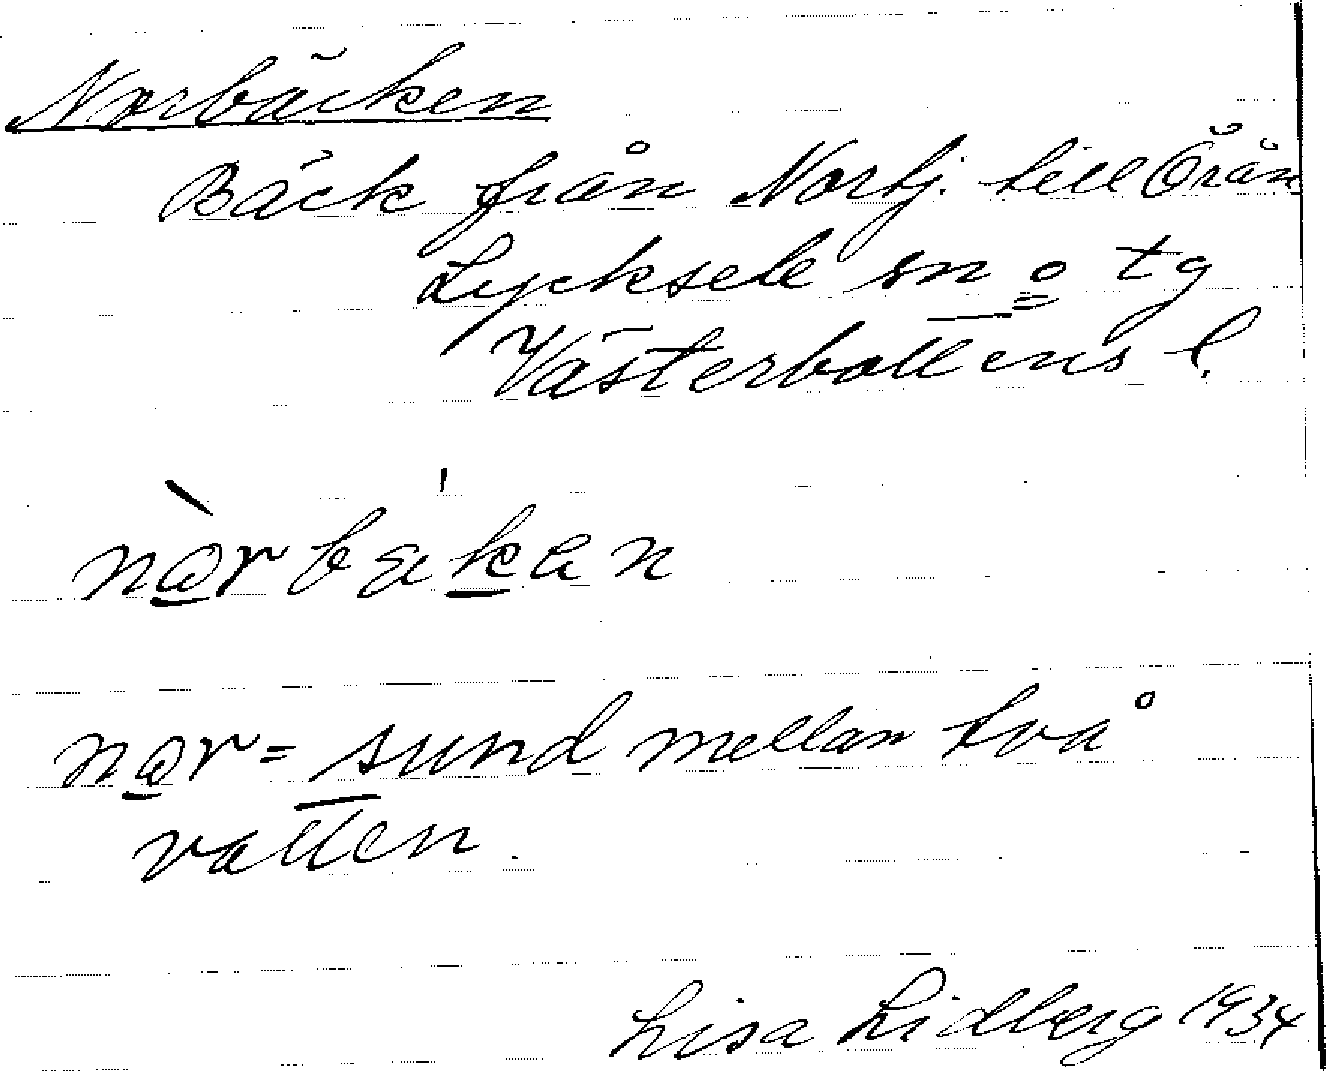 Norbäcken
Bäck från Nortj. till Örån
Lycksele sn o tg
Västerbottens l.
nørbækan
nør = sund mellan två
vatten.
Lisa Lidberg 1934